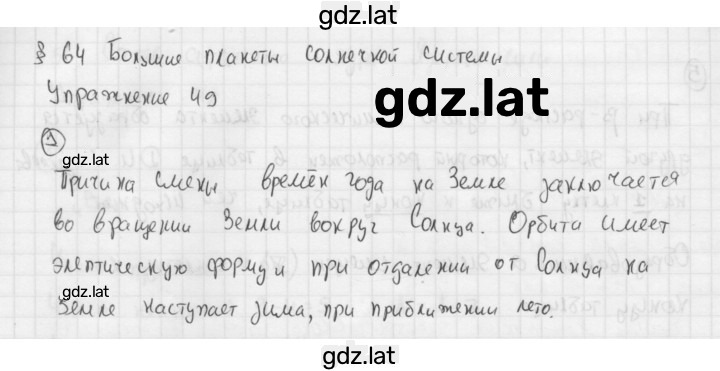 gdz.lat
§ 64 Большие планеты солнечной системы
Упражнение 49
gdz.lat
1
gdz.lat
Причина смены времён года на Земле заключается
во вращении Земли вокруг Солнца. Орбита имеет
элептическую форму и при отдалении от Солнца на
gdz.lat
Земле наступает зима, при приближении лето.
gdz.lat